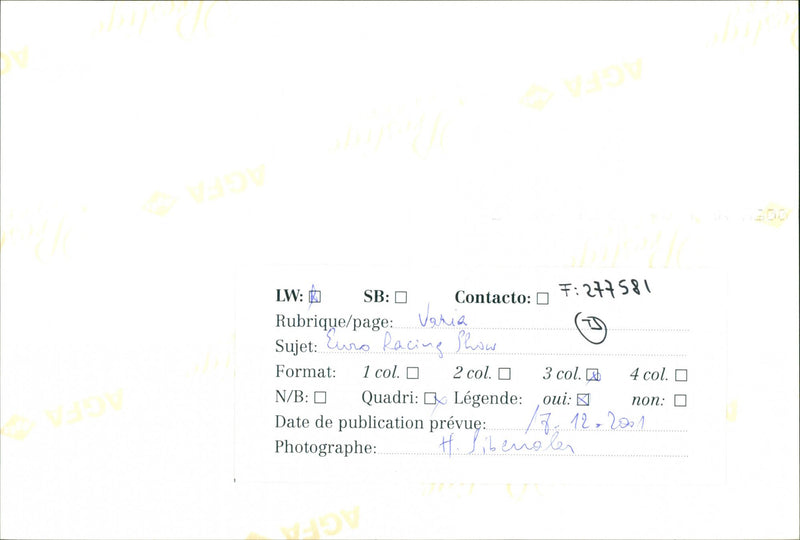 AGFA
AGFA
AGFA
LW: ☒ SB: ☐ Contacto: ☐ F: 277581
Rubrique/page: Varia
Sujet: Euro Racing Show TD
Format: 1 col. ☐ 2 col. ☐ 3 col. ☒ 4 col. ☐
N/B: ☐ Quadri: ☒ Légende: oui: ☒ non: ☐
Date de publication prévue: 17.12.2001
Photographe: H.
AGFA
AGFA